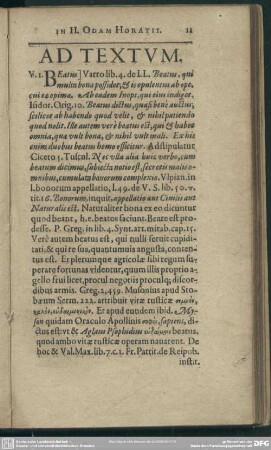 IN II. ODAM HORATII. 11
AD TEXTVM.
V. 1. Beatus] Varro lib. 4. de LL. Beatus, qui
multa bona possidet, & is opulentus ab ope,
cui ea opima. Ab eadem Inops, qui eius indiget.
Isidor. Orig. 10. Beatus dictus, quasi bene auctus,
scilicet ab habendo quod velit, & nihil patiendo
quod nolit. Ille autem vere beatus est, qui & habet
omnia, quae vult bona, & nihil vult male. Ex his
enim duobus beatus homo efficitur. Adstipulatur
Cicero 5. Tuscul. Nec vlla alia huic verbo, cum
beatum dicimus, subiecta notio est, secretis malis
omnibus, cumulata bonorum complexio. Vlpian. in
l. bonorum appellatio, l. 49. de V. S. lib. 50. π.
tit. 16. Bonorum, inquit, appellatio aut Civilis aut
Naturalis est. Naturaliter bona ex eo dicuntur
quod beant, h. e. beatos faciunt. Beare est prodesse.
P. Greg. in lib. 4. Synt. art. mirab. cap. 15.
Vere autem beatus est, qui nulli servit cupiditati,
& qui re sua, quantumuis angusta, contentus
est. Et plerumque agricolae sibi regum superare
fortunas videntur, quum illis proprio agello
frui licet, procul negotiis procul discordibus
armis. Greg. 2, 459. Musonius apud Stobaeum
Serm. 222. attribuit vitae rusticae
Et apud eundem ibid. Myson
quidam Oraculo Apollinis sapiens, dictus
est: vt & Aglaus Psophidius beatus,
quod ambo vitae rusticae operam nauarent. De
hoc & Val. Max. lib. 7. c. 1. Fr. Patrit. de Reipub.
instit.